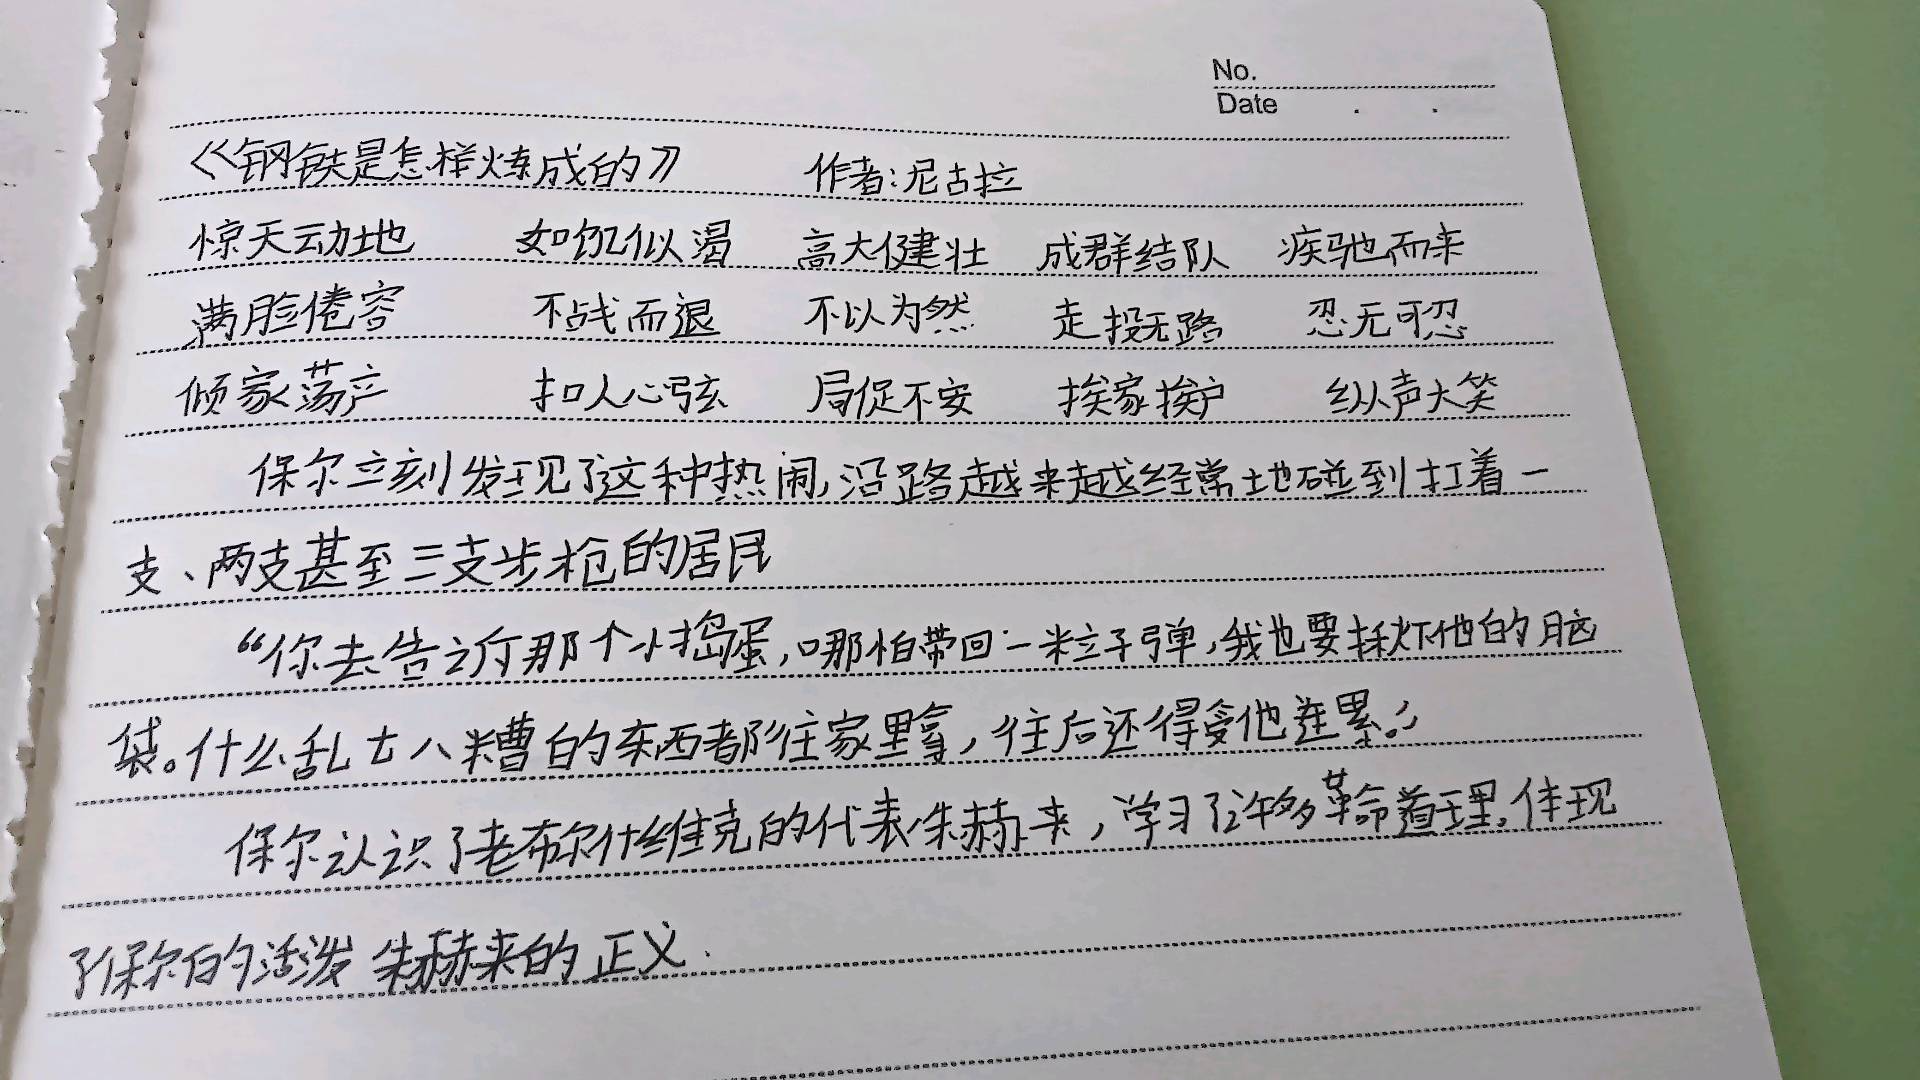 No.
Date . .
《钢铁是怎样炼成的》 作者:尼古拉
惊天动地 如饥似渴 高大健壮 成群结队 疾驰而来
满脸倦容 不战而退 不以为然 走投无路 忍无可忍
倾家荡产 扣人心弦 局促不安 挨家挨户 纵声大笑
保尔立刻发现了这种热闹,沿路越来越经常地碰到扛着一
支、两支甚至三支步枪的居民
“你去告诉那个小捣蛋,哪怕带回一粒子弹,我也要揪他的脑
袋。什么乱七八糟的东西都往家里拿,往后还得受他连累。”
保尔认识了老布尔什维克的代表朱赫来,学习了许多革命道理。体现
了保尔的活泼 朱赫来的正义.